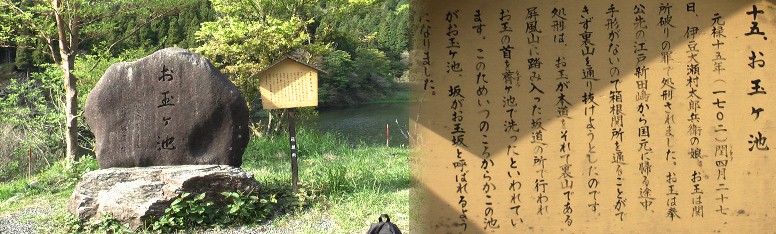 お玉ヶ池
十五、お玉ヶ池
元禄十五年(一七〇二)閏四月二十七
日、伊豆大瀬村太郎兵衛の娘、お玉は関
所破りの罪で処刑されました。お玉は奉
公先の江戸新田嶋から国元に帰る途中、
手形がないので箱根関所を通ることがで
きず裏山を通り抜けようとしたのです。
処刑は、お玉が本道をそれて裏山である
屏風山に踏み入った坂道の所で行われ
お玉の首を薺ヶ池で洗ったといわれてい
ます。このためいつのころからかこの池
がお玉ヶ池、坂がお玉坂と呼ばれるよう
になりました。